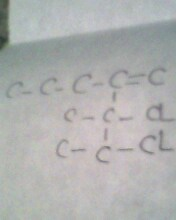 C-C-C-C=C
C-C-CL
C-C-CL